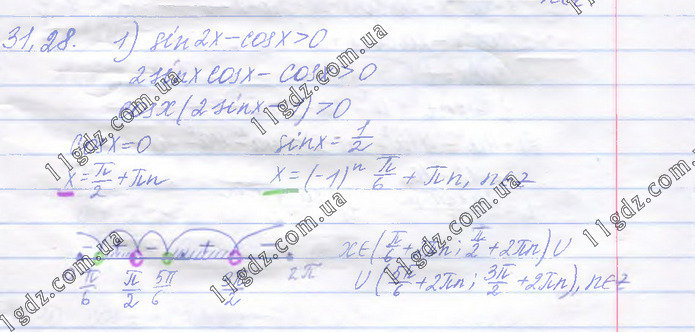 31.28. 1) sin2x-cosx>0
2sinxcosx-cosx>0
cosx(2sinx-1)>0
cosx=0 sinx=1/2
x=π/2+πn x=(-1)^n π/6+πn, n∈z
- + - + -
π/6 π/2 5π/6 3π/2 2π
x∈(π/6+2πn; π/2+2πn)∪
∪(5π/6+2πn; 3π/2+2πn), n∈z
11gdz.com.ua
11gdz.com.ua
11gdz.com.ua
11gdz.com.ua
11gdz.com.ua
11gdz.com.ua
11gdz.com.ua